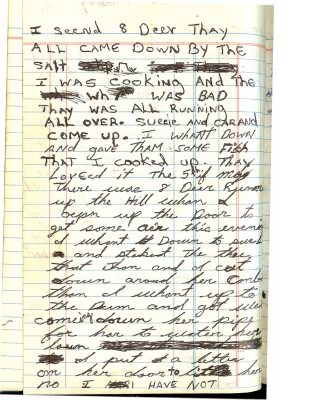 I seend 8 Deer Thay
ALL CAME DOWN BY THE
SAlt
I WAS COOKING AND THE
WAS BAD
THAY WAS ALL RUNNING
ALL OVER. SUECIE AND CARAND
COME UP. I WHANT DOWN
AND gave THAM SOME FisH
THAT I COOKED UP. THAY
Loveed it The 5 of may
There wae 8 Deer
up the Hill whan I
open up the Door to
get some air this evening
I whant Down to
and the
that than and I cut
down around her
than I whant up to
the Dam and got
down her pipe
for har to water her
lawn
I put a letter
on her door to her
no I HAVE NOT